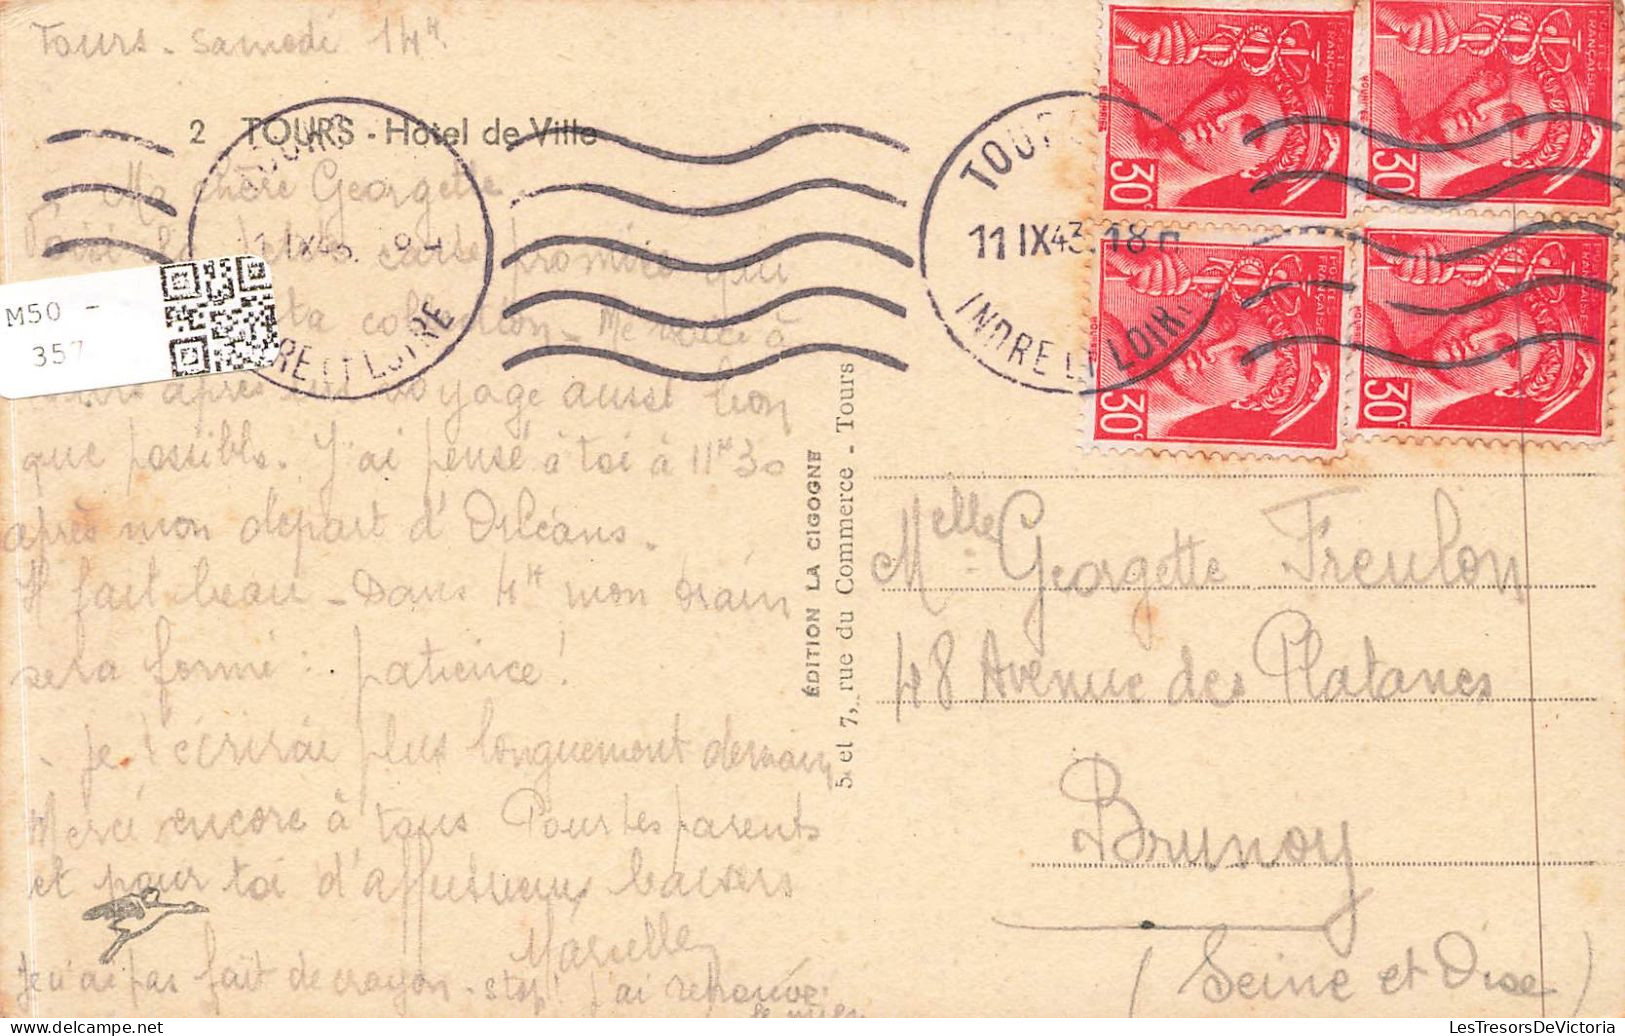 Tours - Samedi 14H
2 TOURS - Hôtel de Ville
Ma chère Georgette
Voici la petite carte promise qui
ta collection - Me voici à
après un voyage aussi bon
que possible. J'ai pensé à toi à 11H30
après mon départ d'Orléans.
Il fait beau - Dans 4H mon train
sera formé : patience !
Je t'écrirai plus longuement demain
Merci encore à tous Pour tes parents
et pour toi d'affectueux baisers
Marcelle
Je n'ai pas fait de crayon - stop ! j'ai retrouvé
M50 -
357
TOURS
11 IX 43
INDRE ET LOIRE
TOURS
11 IX 43 18H
INDRE ET LOIRE
POSTES FRANÇAISES
30c
POSTES FRANÇAISES
30c
POSTES FRANÇAISES
30c
POSTES FRANÇAISES
30c
ÉDITION LA CIGOGNE
5 et 7, rue du Commerce - Tours
Melle Georgette Freulon
48 Avenue des Platanes
Brunoy
(Seine et Oise)
LesTresorsDeVictoria